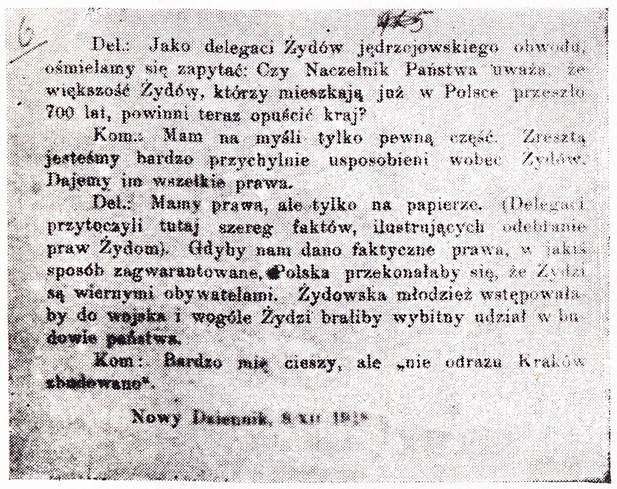 6
Del.: Jako delegaci Żydów jędrzejowskiego obwodu,
ośmielamy się zapytać: Czy Naczelnik Państwa uważa, że
większość Żydów, którzy mieszkają już w Polsce przeszło
700 lat, powinni teraz opuścić kraj?
Kom.: Mam na myśli tylko pewną część. Zresztą
jesteśmy bardzo przychylnie usposobieni wobec Żydów.
Dajemy im wszelkie prawa.
Del.: Mamy prawa, ale tylko na papierze. (Delegaci
przytoczyli tutaj szereg faktów, ilustrujących odebranie
praw Żydom). Gdyby nam dano faktyczne prawa, w jakiś
sposób zagwarantowane, Polska przekonałaby się, że Żydzi
są wiernymi obywatelami. Żydowska młodzież wstępowała-
by do wojska i wogóle Żydzi braliby wybitny udział w bu-
dowie państwa.
Kom: Bardzo mię cieszy, ale „nie odrazu Kraków
zbudowano".
Nowy Dziennik, 8 XII 1918